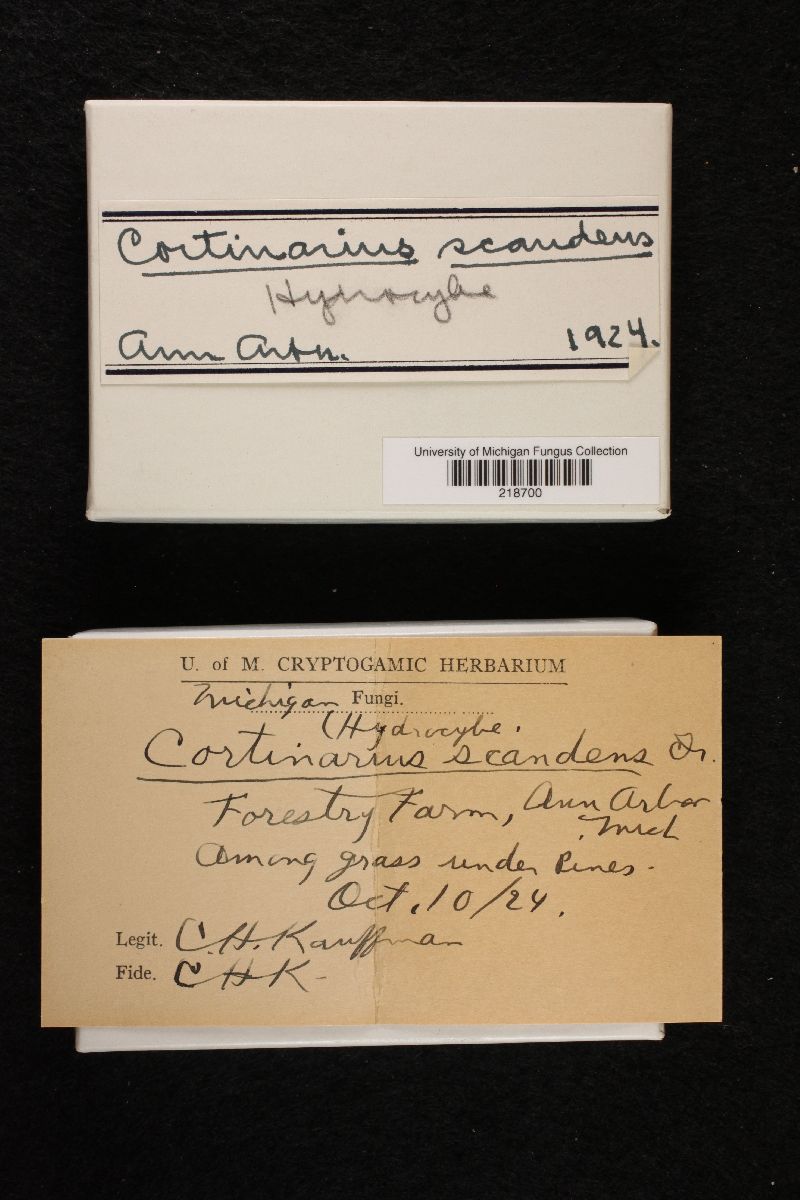 Cortinarius scandens
Hydrocybe
Ann Arbor.
1924.
University of Michigan Fungus Collection
218700
U. of M. CRYPTOGAMIC HERBARIUM
Michigan Fungi.
(Hydrocybe.
Cortinarius scandens Fr.
Forestry Farm, Ann Arbor
Mich
Among grass under Pines.
Oct. 10/24.
Legit. C.H. Kauffman
Fide. CHK